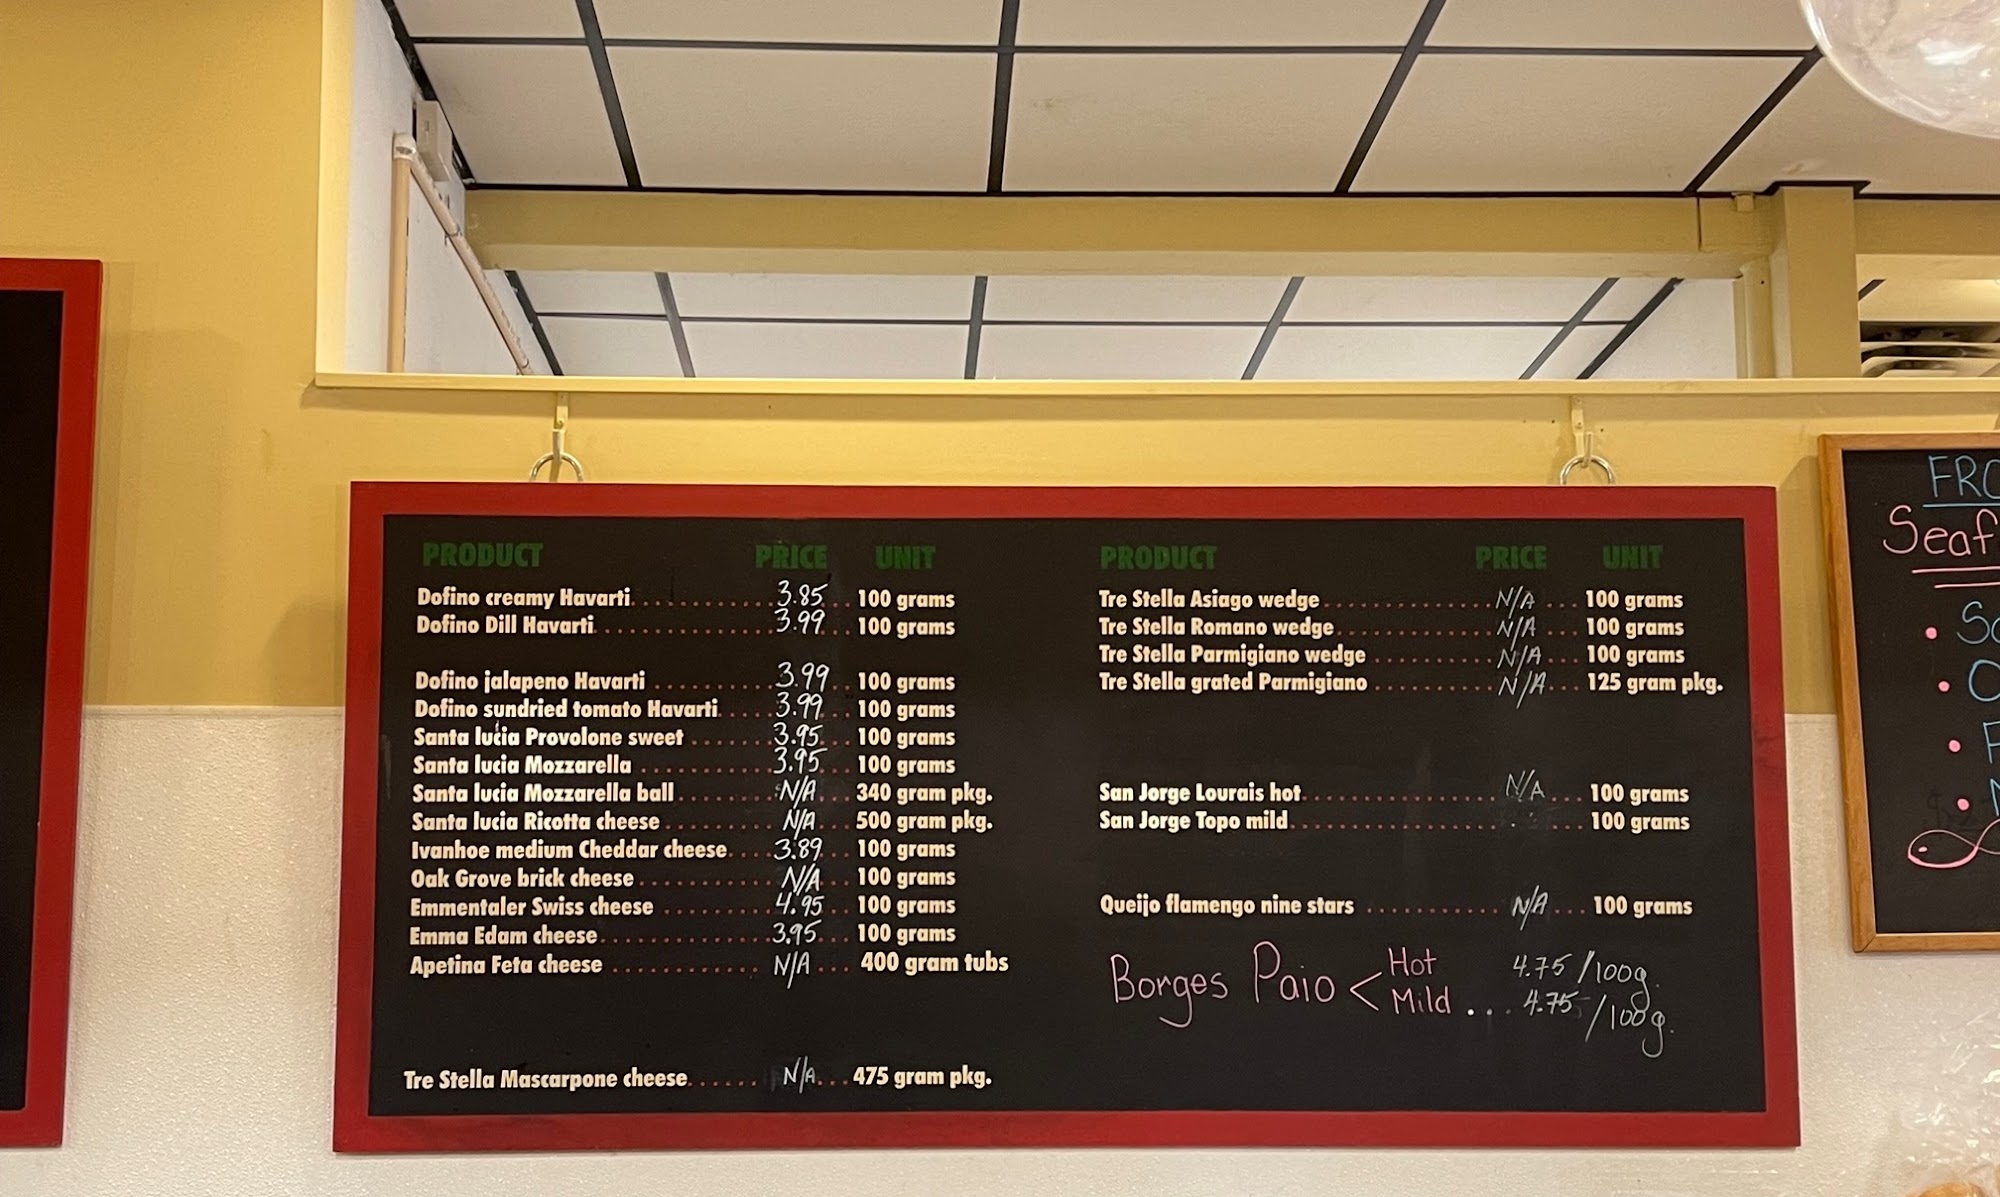 PRODUCT PRICE UNIT
Dofino creamy Havarti 3.85 100 grams
Dofino Dill Havarti 3.99 100 grams
Dofino jalapeno Havarti 3.99 100 grams
Dofino sundried tomato Havarti 3.99 100 grams
Santa lucia Provolone sweet 3.95 100 grams
Santa lucia Mozzarella 3.95 100 grams
Santa lucia Mozzarella ball N/A 340 gram pkg.
Santa lucia Ricotta cheese N/A 500 gram pkg.
Ivanhoe medium Cheddar cheese 3.89 100 grams
Oak Grove brick cheese N/A 100 grams
Emmentaler Swiss cheese 4.95 100 grams
Emma Edam cheese 3.95 100 grams
Apetina Feta cheese N/A 400 gram tubs
Tre Stella Mascarpone cheese N/A 475 gram pkg.
PRODUCT PRICE UNIT
Tre Stella Asiago wedge N/A 100 grams
Tre Stella Romano wedge N/A 100 grams
Tre Stella Parmigiano wedge N/A 100 grams
Tre Stella grated Parmigiano N/A 125 gram pkg.
San Jorge Lourais hot N/A 100 grams
San Jorge Topo mild 100 grams
Queijo flamengo nine stars N/A 100 grams
Borges Paio < Hot 4.75/100g.
Mild ... 4.75/100g.